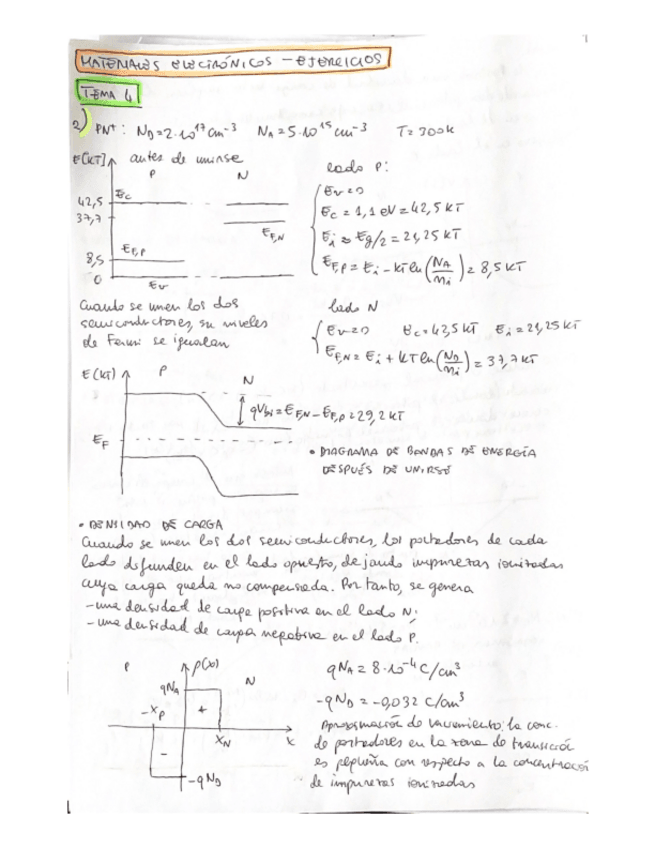 MATERIALES ELECTRÓNICOS - EJERCICIOS
TEMA 4
2) PN+: ND=2·10^17 cm^-3 NA=5·10^15 cm^-3 T=300K
E(KT) antes de unirse
P N
lado P:
42,5 Ec
37,7
EF,N
EF,P
8,5
0
Ev
Ev=0
Ec = 1,1 eV = 42,5 KT
Ei ≈ Eg/2 = 21,25 KT
EF,P = Ei - KT ln(NA/ni) = 8,5 KT
Cuando se unen los dos
semiconductores, su niveles
de Fermi se igualan
lado N
Ev=0 Ec=42,5 KT Ei=21,25 KT
EF,N = Ei + KT ln(ND/ni) = 37,7 KT
E(KT) P N
qVbi = EF,N - EF,P = 29,2 KT
EF
• DIAGRAMA DE BANDAS DE ENERGÍA
DESPUÉS DE UNIRSE
• DENSIDAD DE CARGA
Cuando se unen los dos semiconductores, los portadores de cada
lado difunden en el lado opuesto, dejando impurezas ionizadas
cuya carga queda no compensada. Por tanto, se genera
- una densidad de carga positiva en el lado N;
- una densidad de carga negativa en el lado P.
P ρ(x) N
qNA
+
-xp
xN x
-
-qND
qNA = 8·10^-4 C/cm^3
-qND = -0,032 C/cm^3
Aproximación de vaciamiento: la conc.
de portadores en la zona de transición
es pequeña con respecto a la concentración
de impurezas ionizadas